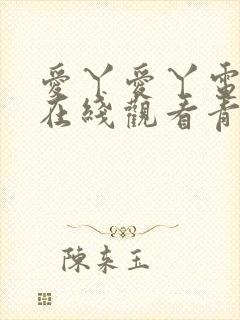 愛丫愛丫電
在綫觀看青
陳来玉